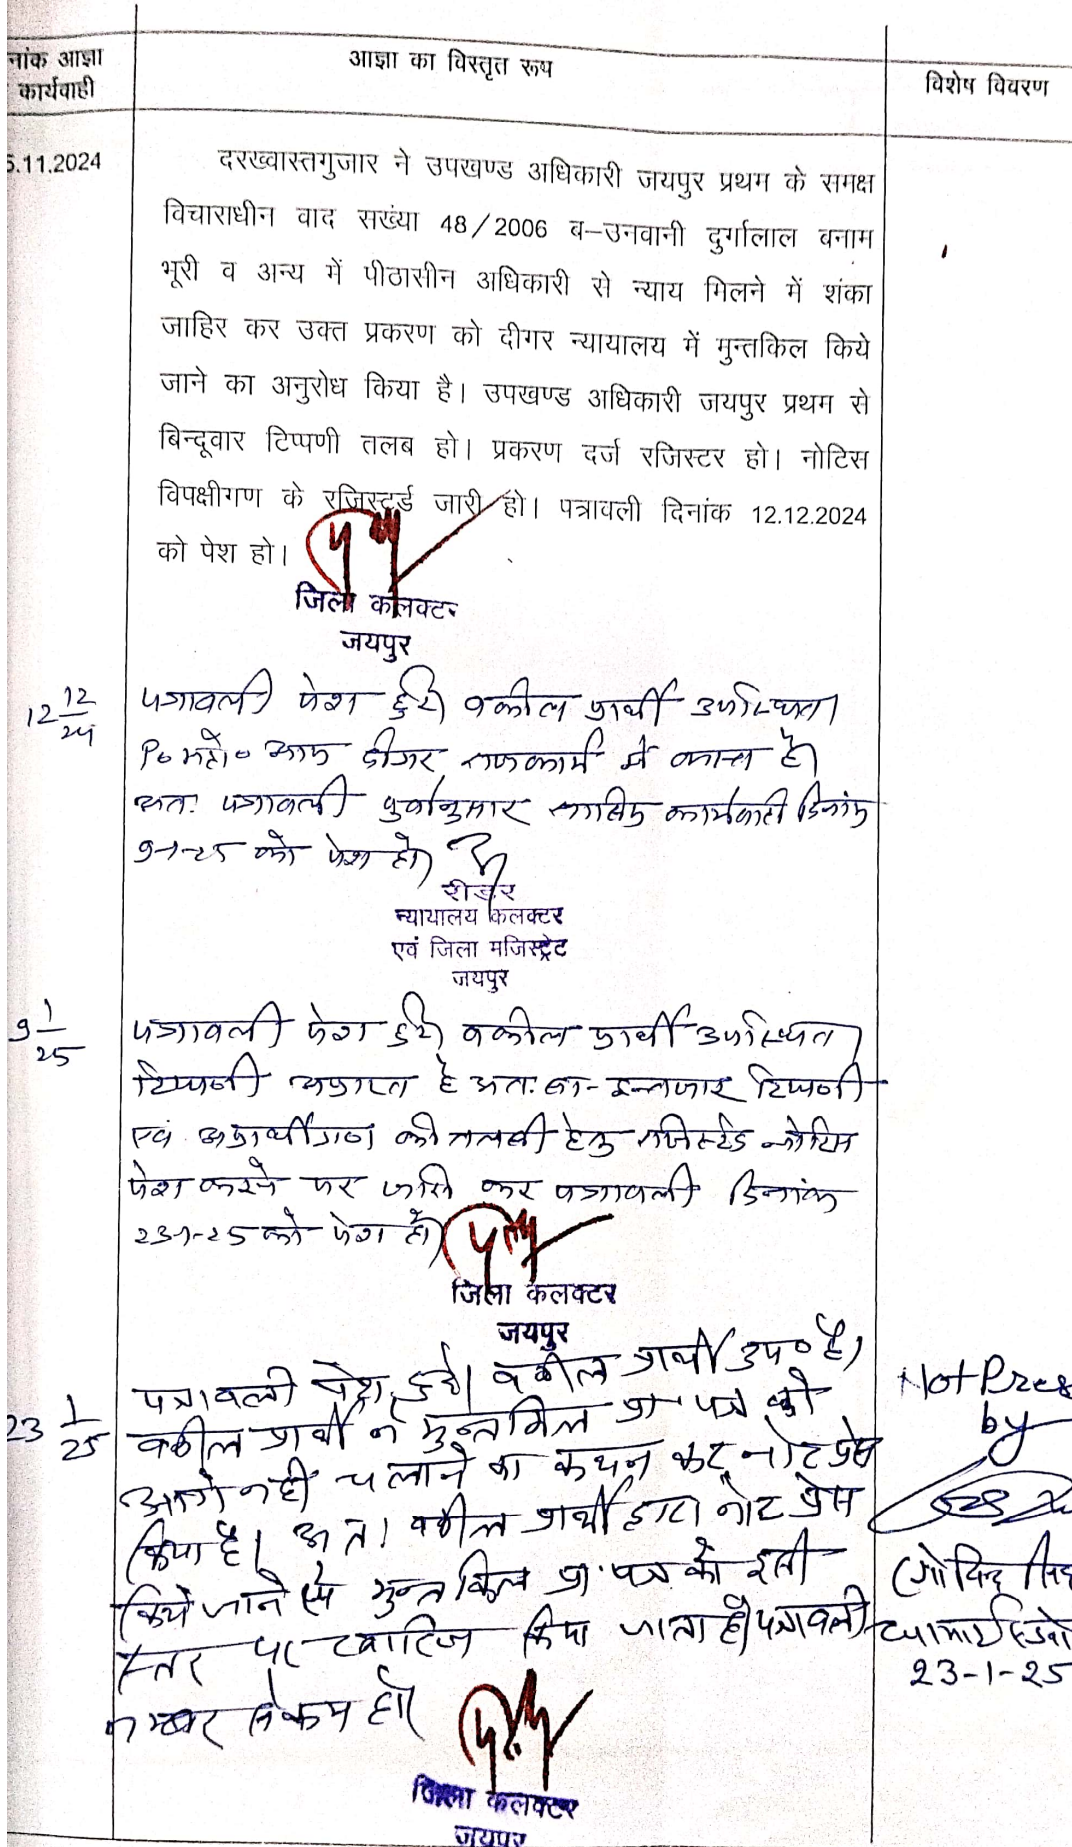 नांक आज्ञा
कार्यवाही
आज्ञा का विस्तृत रूप
विशेष विवरण
5.11.2024
दरख्वास्तगुजार ने उपखण्ड अधिकारी जयपुर प्रथम के समक्ष
विचाराधीन वाद सख्या 48/2006 ब–उनवानी दुर्गालाल बनाम
भूरी व अन्य में पीठासीन अधिकारी से न्याय मिलने में शंका
जाहिर कर उक्त प्रकरण को दीगर न्यायालय में मुन्तकिल किये
जाने का अनुरोध किया है। उपखण्ड अधिकारी जयपुर प्रथम से
बिन्दूवार टिप्पणी तलब हो। प्रकरण दर्ज रजिस्टर हो। नोटिस
विपक्षीगण के रजिस्टर्ड जारी हो। पत्रावली दिनांक 12.12.2024
को पेश हो।
जिला कलक्टर
जयपुर
12 12/24
पत्रावली पेश हुई। वकील प्रार्थी उपस्थित।
P० महो० दीगर राजकार्य में व्यस्त है।
अतः पत्रावली पूर्वानुसार कार्यवाही दिनांक
9-1-25 को पेश हो।
रीडर
न्यायालय कलक्टर
एवं जिला मजिस्ट्रेट
जयपुर
9 1/25
पत्रावली पेश हुई। वकील प्रार्थी उपस्थित।
टिप्पणी अप्राप्त है अतः बा-इन्तजार टिप्पणी
एवं अप्रार्थीगण की तलबी हेतु रजिस्टर्ड नोटिस
पेश करने पर जारी कर पत्रावली दिनांक
23-1-25 को पेश हो।
जिला कलक्टर
जयपुर
23 1/25
पत्रावली पेश हुई। वकील प्रार्थी उप० है।
वकील प्रार्थी ने मुन्तकिल प्रा. पत्र को
आगे नहीं चलाने का कथन कर नोट प्रेस
किया है। अतः वकील प्रार्थी द्वारा नोट प्रेस
किये जाने से मुन्तकिल प्रा. पत्र को इसी
स्तर पर खारिज किया जाता है। पत्रावली
नम्बर से कम हो।
Not Press
by
(गोविन्द सिंह
23-1-25
जिला कलक्टर
जयपुर